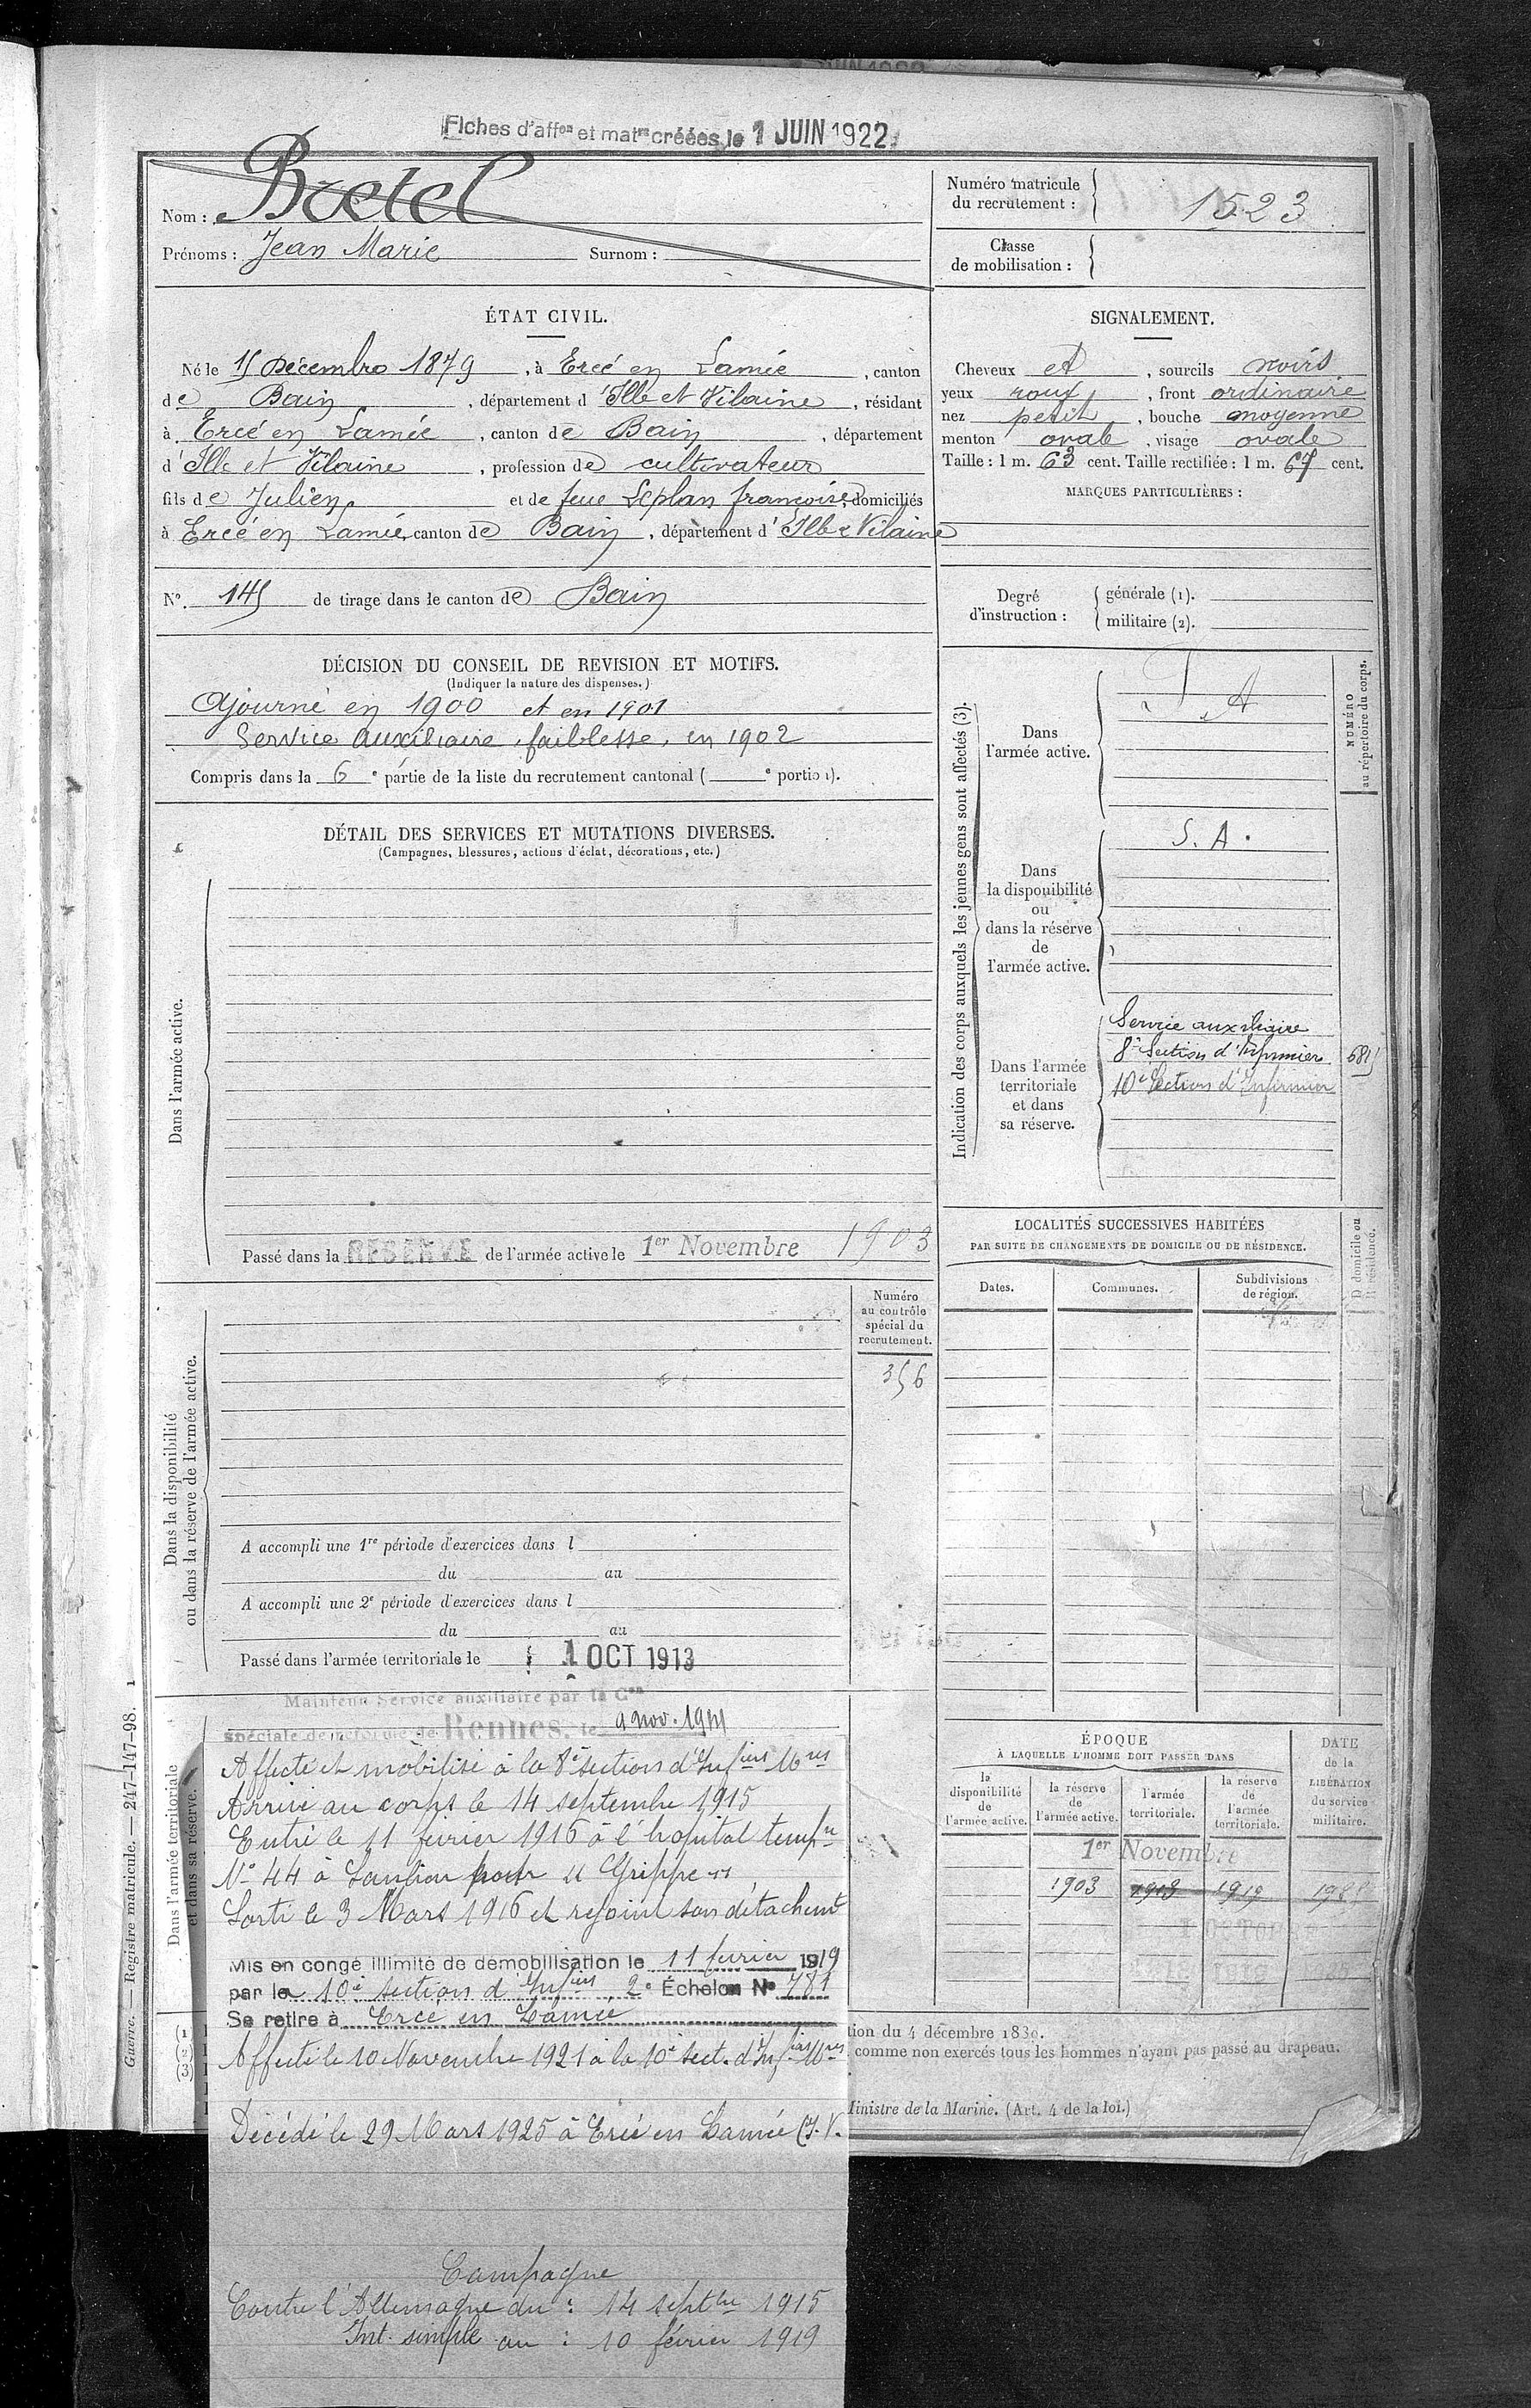 Fiches d'affon et matre créées le 1 JUIN 1922
Nom : Bretel
Prénoms : Jean Marie Surnom :
Numéro matricule du recrutement : 1523
Classe de mobilisation :
ÉTAT CIVIL.
Né le 15 Décembre 1879, à Ercé en Lamée, canton
de Bain, département d'Ille et Vilaine, résidant
à Ercé en Lamée, canton de Bain, département
d'Ille et Vilaine, profession de cultivateur
fils de Julien et de feue Leplan françoise, domiciliés
à Ercé en Lamée, canton de Bain, département d'Ille & Vilaine
N° 145 de tirage dans le canton de Bain
SIGNALEMENT.
Cheveux et, sourcils noirs
yeux roux, front ordinaire
nez petit, bouche moyenne
menton ovale, visage ovale
Taille : 1 m. 63 cent. Taille rectifiée : 1 m. 67 cent.
MARQUES PARTICULIÈRES :
Degré d'instruction : générale (1).
militaire (2).
DÉCISION DU CONSEIL DE REVISION ET MOTIFS.
(Indiquer la nature des dispenses.)
Ajourné en 1900 et en 1901
Service auxiliaire, faiblesse, en 1902
Compris dans la 6e partie de la liste du recrutement cantonal ( e portion).
DÉTAIL DES SERVICES ET MUTATIONS DIVERSES.
(Campagnes, blessures, actions d'éclat, décorations, etc.)
Dans l'armée active.
Passé dans la RÉSERVE de l'armée active le 1er Novembre 1903
Indication des corps auxquels les jeunes gens sont affectés (3).
NUMÉRO au répertoire du corps.
Dans l'armée active.
A
Dans la disponibilité ou dans la réserve de l'armée active.
S. A.
Dans l'armée territoriale et dans sa réserve.
Service auxiliaire
8e Section d'Infirmiers
10e Section d'Infirmier
LOCALITÉS SUCCESSIVES HABITÉES
PAR SUITE DE CHANGEMENTS DE DOMICILE OU DE RÉSIDENCE.
Dates. Communes. Subdivisions de région.
D domicile ou R résidence.
Dans la disponibilité ou dans la réserve de l'armée active.
Numéro au contrôle spécial du recrutement.
356
A accompli une 1re période d'exercices dans l
du au
A accompli une 2e période d'exercices dans l
du au
Passé dans l'armée territoriale le 1 OCT 1913
Dans l'armée territoriale et dans sa réserve.
Maintenu Service auxiliaire par la Con
spéciale de réforme de Rennes, le 9 nov. 1914
Affecté et mobilisé à la 8e section d'Infiers Mres
Arrivé au corps le 14 septembre 1915
Entré le 11 février 1916 à l'hopital tempre
N° 44 à Lannion pour "Grippe"
Sorti le 3 Mars 1916 et rejoint son détachemt
Mis en congé illimité de démobilisation le 11 février 1919
par la 10e section d'Infiers 2e Échelon N° 781
Se retire à Ercé en Lamée
Affecté le 10 Novembre 1921 à la 10e sect. d'Infiers Mres
Décédé le 29 Mars 1925 à Ercé en Lamée (I. V.
Campagne
Contre l'Allemagne du : 14 septbre 1915
Int. simple au : 10 février 1919
ÉPOQUE
À LAQUELLE L'HOMME DOIT PASSER DANS
la disponibilité de l'armée active.
la réserve de l'armée active.
l'armée territoriale.
la réserve de l'armée territoriale.
DATE de la LIBÉRATION du service militaire.
1er Novembre
1903 1913 1919
tion du 4 décembre 1830.
comme non exercés tous les hommes n'ayant pas passé au drapeau.
Ministre de la Marine. (Art. 4 de la loi.)
Guerre. — Registre matricule. — 247-147-98.